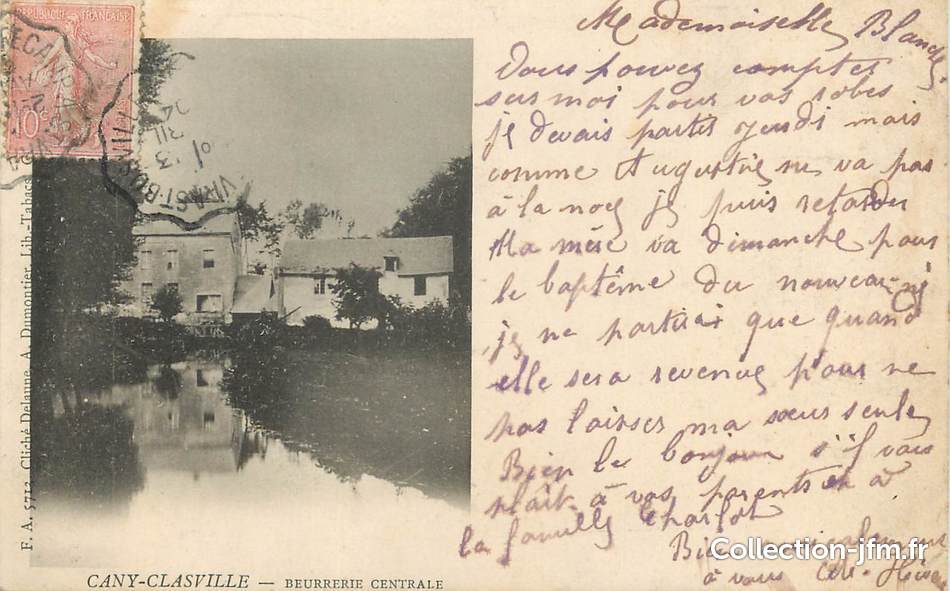 RÉPUBLIQUE FRANÇAISE
10c
F. A. 5712 Cliché Delaune, A. Dumontier, Lib.-Tabacs
CANY-CLASVILLE — BEURRERIE CENTRALE
Mademoiselle Blanche
Vous pouvez compter
sur moi pour vos robes
je devais partir jeudi mais
comme Augustine ne va pas
à la noce je puis retarder
Ma mère va dimanche pour
le baptême du nouveau-né
je ne partirai que quand
elle sera revenue pour ne
pas laisser ma sœur seule
Bien le bonjour s'il vous
plaît à vos parents et à
la famille Charlot
Bien
à vous
Collection-jfm.fr